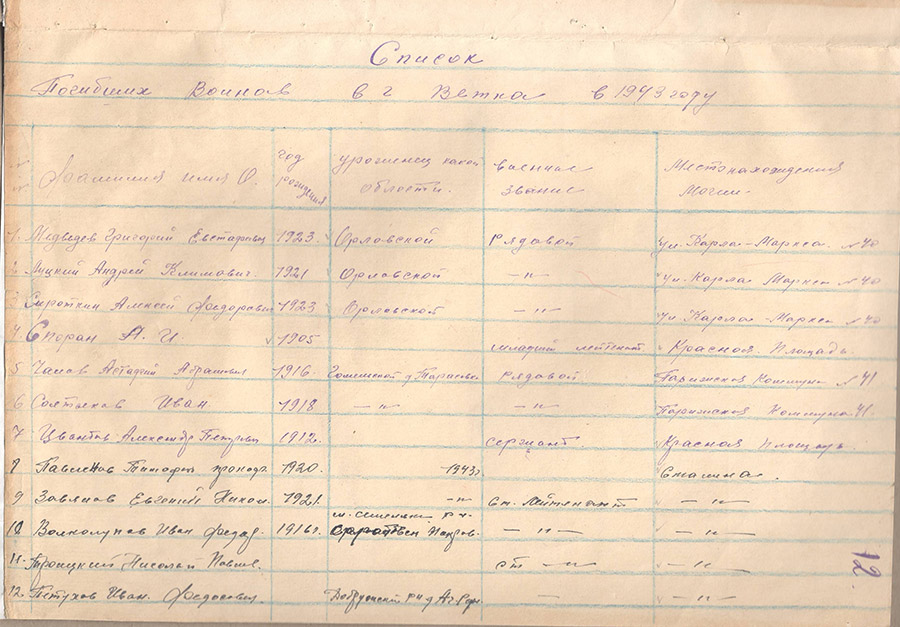 Список
Погибших Воинов в г Ветка в 1943 году
Фамилия имя О. год рождения уроженец какой области. военное звание Местонахождения Могии.
1. Медведев Григорий Евстафьевич 1923. Орловской рядовой ул. Карла-Маркса. №40
2. Лицкий Андрей Климович. 1921 Орловской —"— ул. Карла Маркса №40
3 Сироткин Алексей Федорович 1923 Орловской —"— ул. Карла-Маркса №40
4 Споран А. И. 1905 младший лейтенант Красная Площадь.
5 Часов Астафий Абрамович 1916. Гомельской д Тарасовка рядовой Парижской Коммуны №41
6 Солтыков Иван 1918 —"— —"— Парижской Коммуны 41.
7 Цвантов Александр Петрович 1912. сержант Красная Площадь
8 Тимофей 1920. 1943г Сталина.
9 Евгений Никол. 1921. —"— Лейтенант —"—
10 Волколупов Иван Федор. 1916г. —"— —"—
11. Троицкий Николай Павлов. ст —"— —"—
12. Петухов Иван. Федосович. Добрушский р-н д — —"—
12.